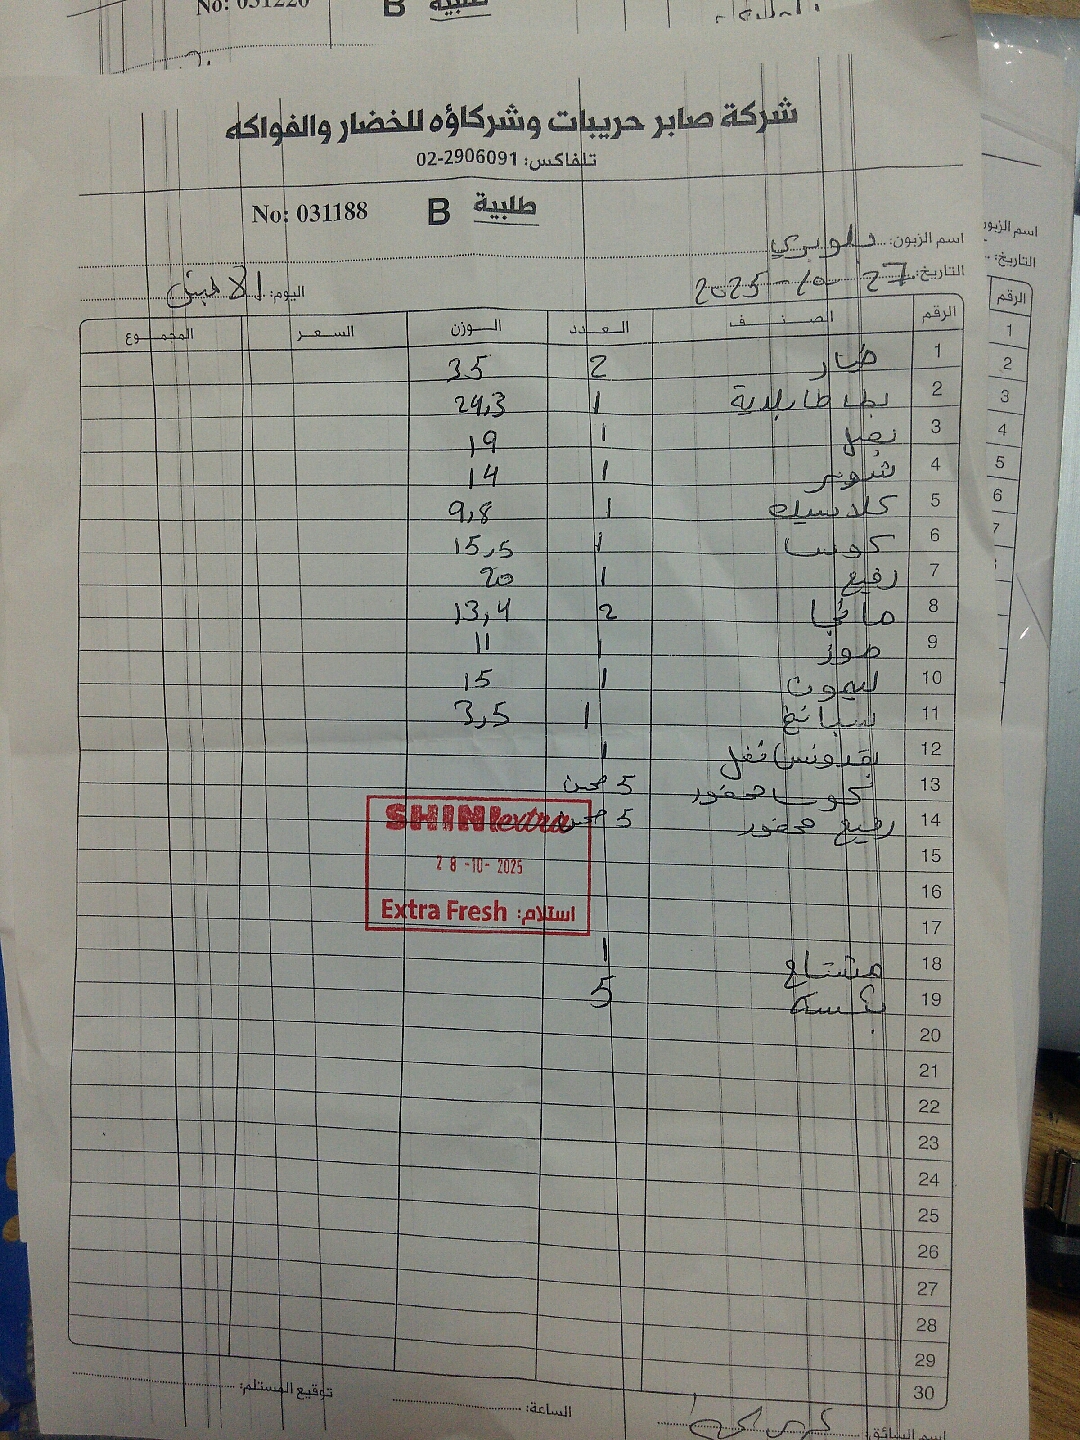 No: 031220 B طلبية
شركة صابر حريبات وشركاؤه للخضار والفواكه
تلفاكس: 02-2906091
No: 031188 B طلبية
اسم الزبون:
التاريخ: 27 - 10 - 2025 اليوم: الاثنين
الرقم الصنف العدد الوزن السعر المجموع
1 خيار 2 35
2 بطاطا بلدية 1 24,3
3 بصل 1 19
4 1 14
5 كلاسيك 1 9,8
6 كوسا 1 15,5
7 رفيع 1 20
8 مانجا 2 13,4
9 موز 1 11
10 ليمون 1 15
11 سبانخ 1 3,5
12 بقدونس نخل 1
13 كوسا محفور 5 صحن
14 رفيع محفور 5 صحن
SHINI extra
28-10-2025
استلام: Extra Fresh
15
16
17
18 مشتاح 1
19 بكسة 5
20
21
22
23
24
25
26
27
28
29
30
اسم السائق: الساعة: توقيع المستلم:
اسم الزبون
التاريخ:
الرقم
1
2
3
4
5
6
7